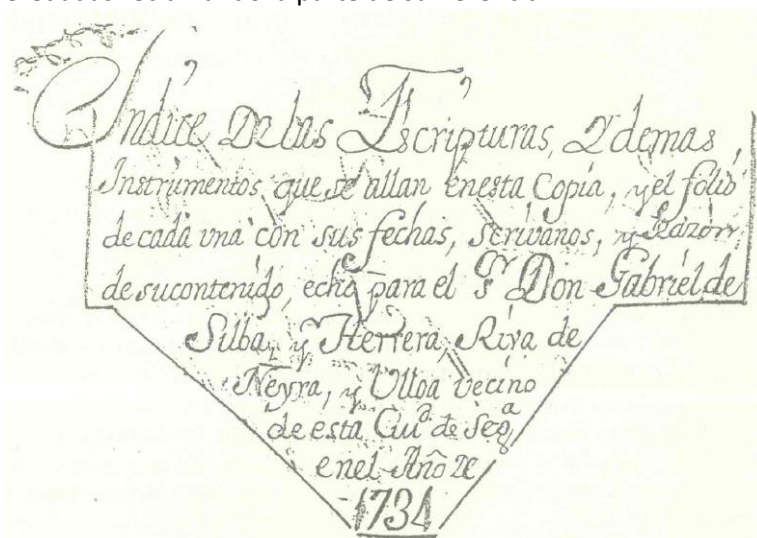 Indice De las Escripturas, Y demas
Instrumentos que se allan enesta Copia, y el folio
de cada vna con sus fechas, Scrivanos, y Razon
de sucontenido, echo para el Sr Don Gabriel de
Silba, y Herrera, Riva de
Neyra, y Ulloa vecino
de esta Ciud de Sega
enel Año de
1734